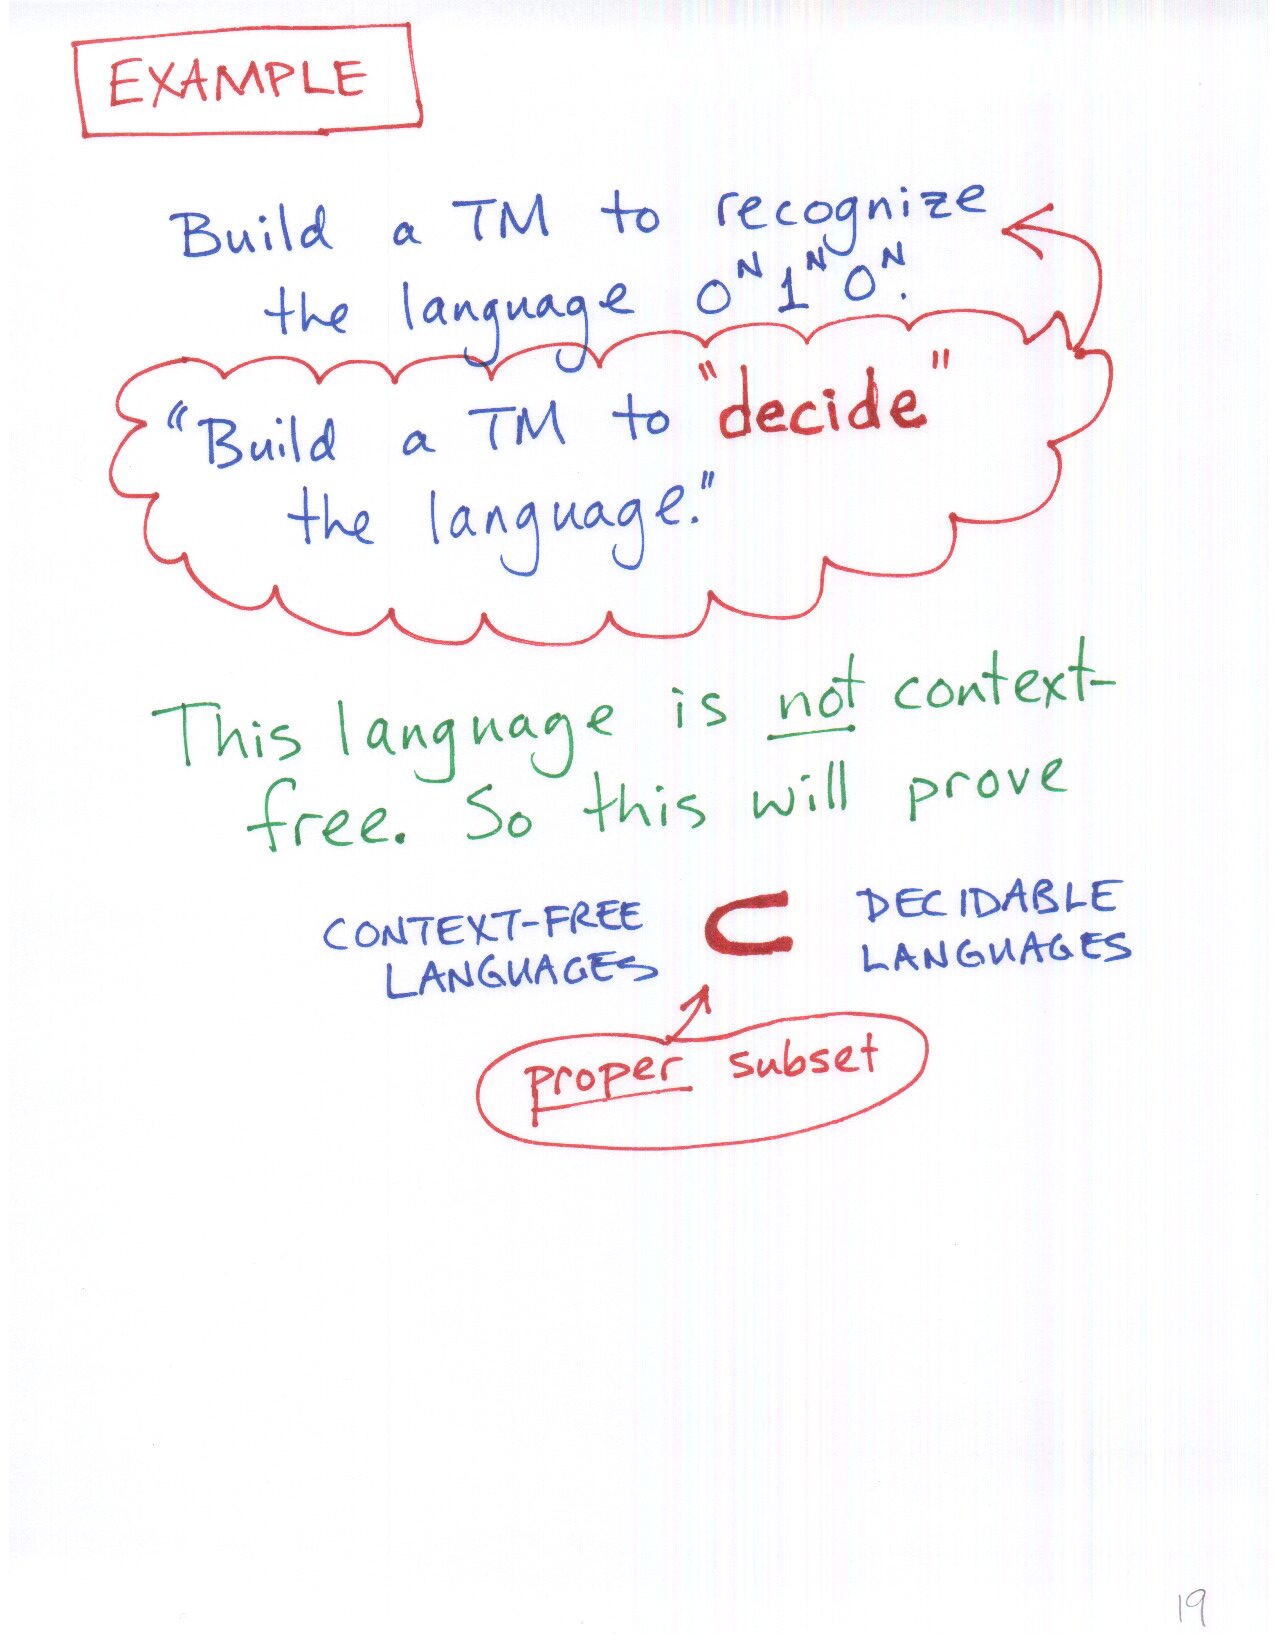 EXAMPLE
Build a TM to recognize
the language 0ᴺ1ᴺ0ᴺ.
"Build a TM to "decide"
the language."
This language is not context-
free. So this will prove
CONTEXT-FREE ⊂ DECIDABLE
LANGUAGES LANGUAGES
proper subset
19